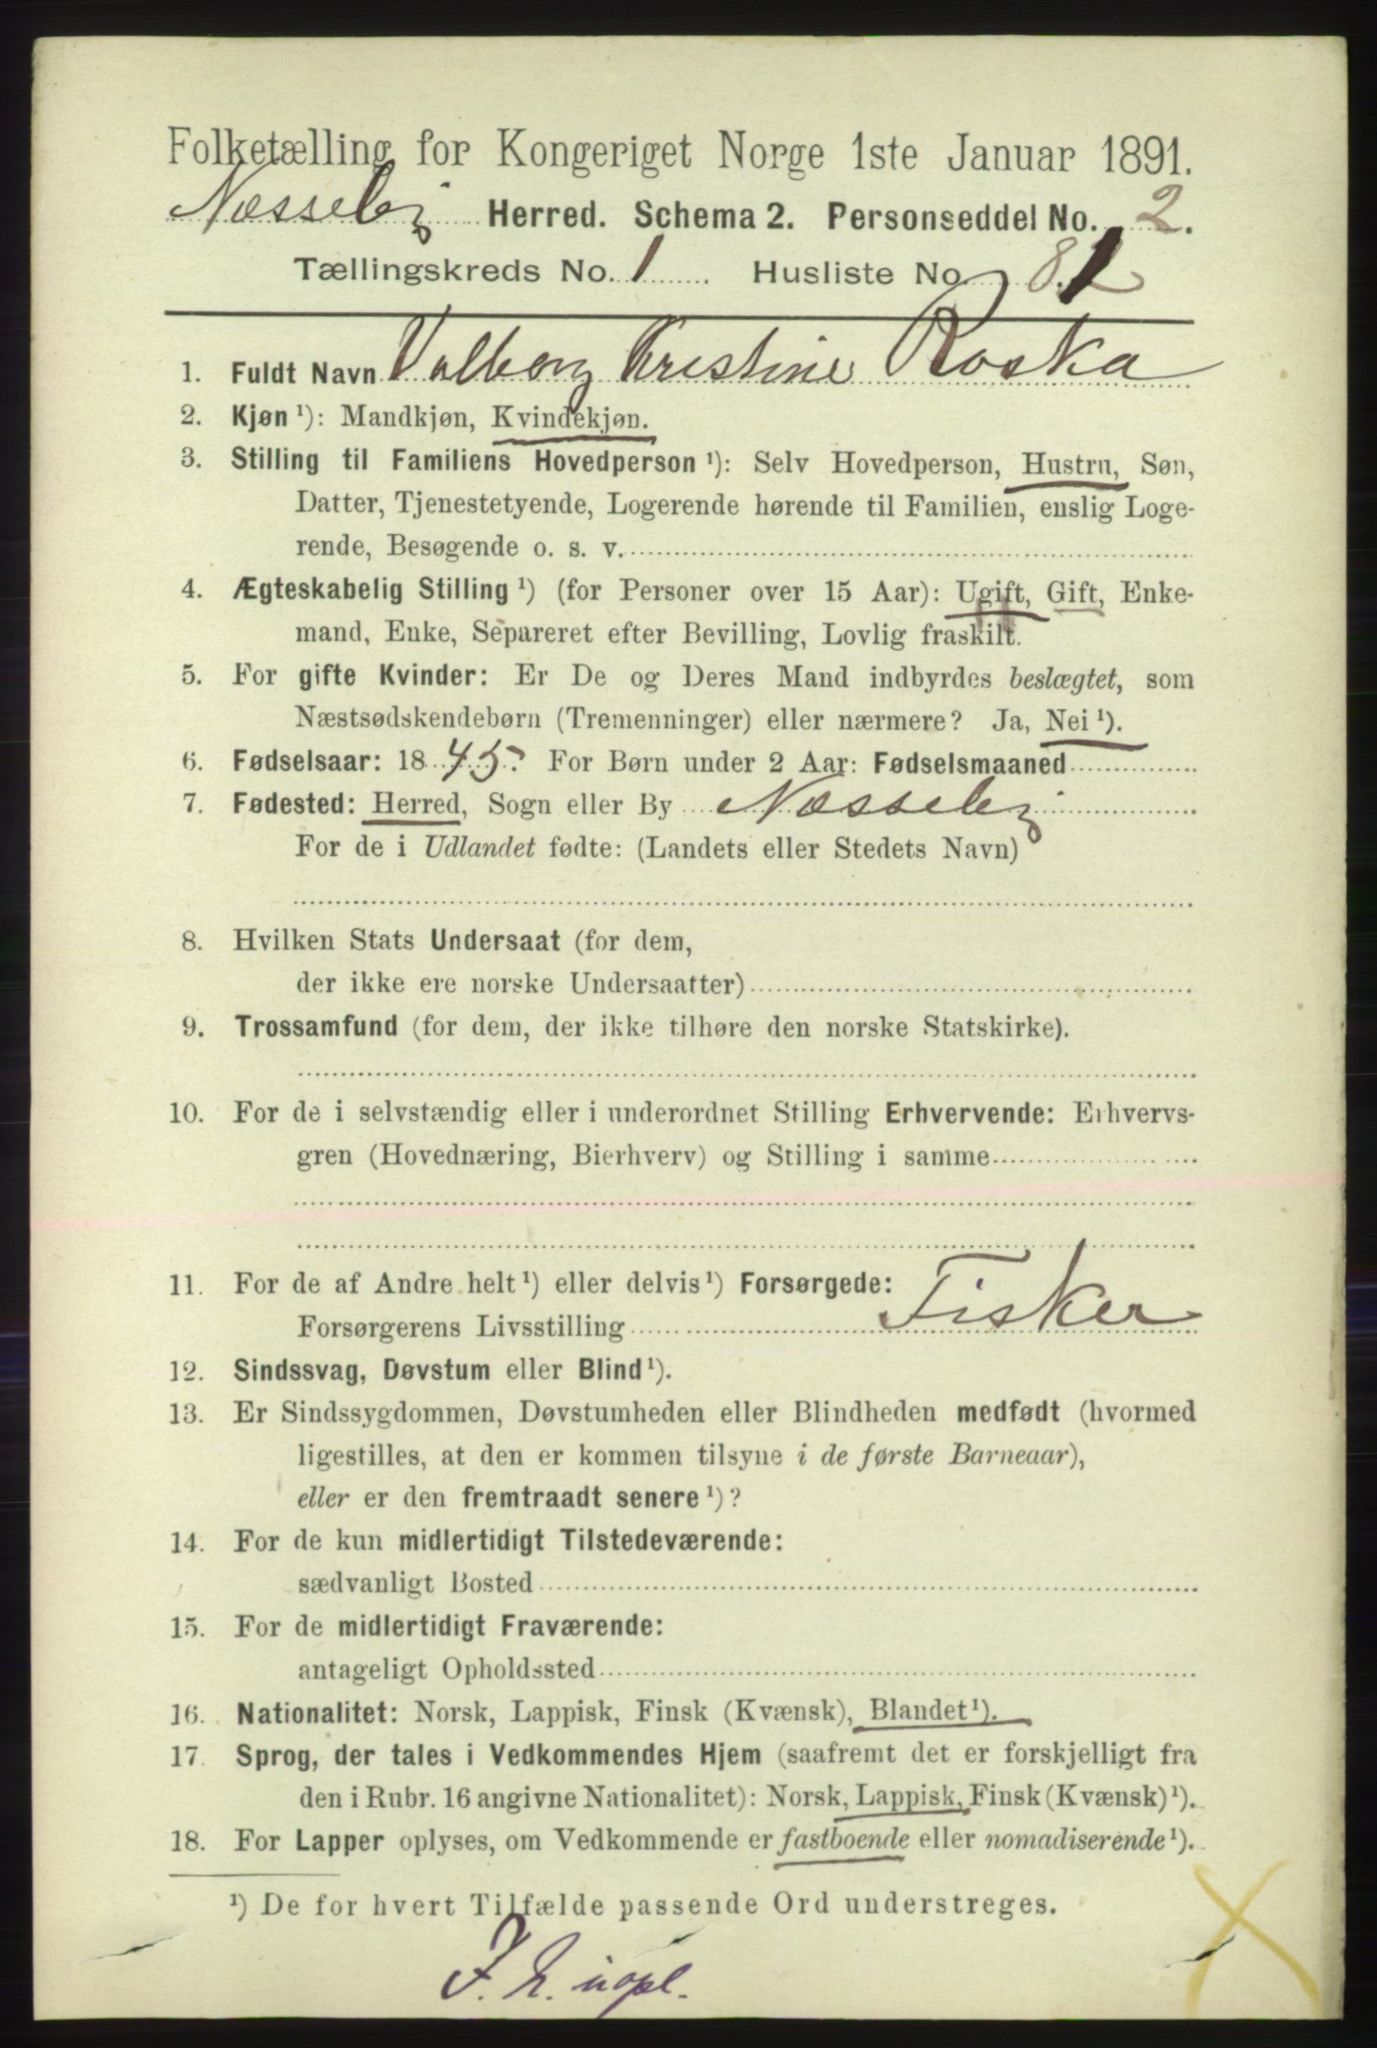 Folketælling for Kongeriget Norge 1ste Januar 1891.
Næsseby Herred. Schema 2. Personseddel No. 2.
Tællingskreds No. 1 Husliste No. 81
1. Fuldt Navn Valborg Kristine Roska
2. Kjøn ¹): Mandkjøn, Kvindekjøn.
3. Stilling til Familiens Hovedperson ¹): Selv Hovedperson, Hustru, Søn,
Datter, Tjenestetyende, Logerende hørende til Familien, enslig Loge-
rende, Besøgende o. s. v.
4. Ægteskabelig Stilling ¹) (for Personer over 15 Aar): Ugift, Gift, Enke-
mand, Enke, Separeret efter Bevilling, Lovlig fraskilt.
5. For gifte Kvinder: Er De og Deres Mand indbyrdes beslægtet, som
Næstsødskendebørn (Tremenninger) eller nærmere? Ja, Nei ¹).
6. Fødselsaar: 1845. For Børn under 2 Aar: Fødselsmaaned
7. Fødested: Herred, Sogn eller By Næsseby
For de i Udlandet fødte: (Landets eller Stedets Navn)
8. Hvilken Stats Undersaat (for dem,
der ikke ere norske Undersaatter)
9. Trossamfund (for dem, der ikke tilhøre den norske Statskirke).
10. For de i selvstændig eller i underordnet Stilling Erhvervende: Erhvervs-
gren (Hovednæring, Bierhverv) og Stilling i samme
11. For de af Andre helt ¹) eller delvis ¹) Forsørgede:
Forsørgerens Livsstilling Fisker
12. Sindssvag, Døvstum eller Blind ¹).
13. Er Sindssygdommen, Døvstumheden eller Blindheden medfødt (hvormed
ligestilles, at den er kommen tilsyne i de første Barneaar),
eller er den fremtraadt senere ¹)?
14. For de kun midlertidigt Tilstedeværende:
sædvanligt Bosted
15. For de midlertidigt Fraværende:
antageligt Opholdssted
16. Nationalitet: Norsk, Lappisk, Finsk (Kvænsk), Blandet ¹).
17. Sprog, der tales i Vedkommendes Hjem (saafremt det er forskjelligt fra
den i Rubr. 16 angivne Nationalitet): Norsk, Lappisk, Finsk (Kvænsk) ¹).
18. For Lapper oplyses, om Vedkommende er fastboende eller nomadiserende ¹).
¹) De for hvert Tilfælde passende Ord understreges.